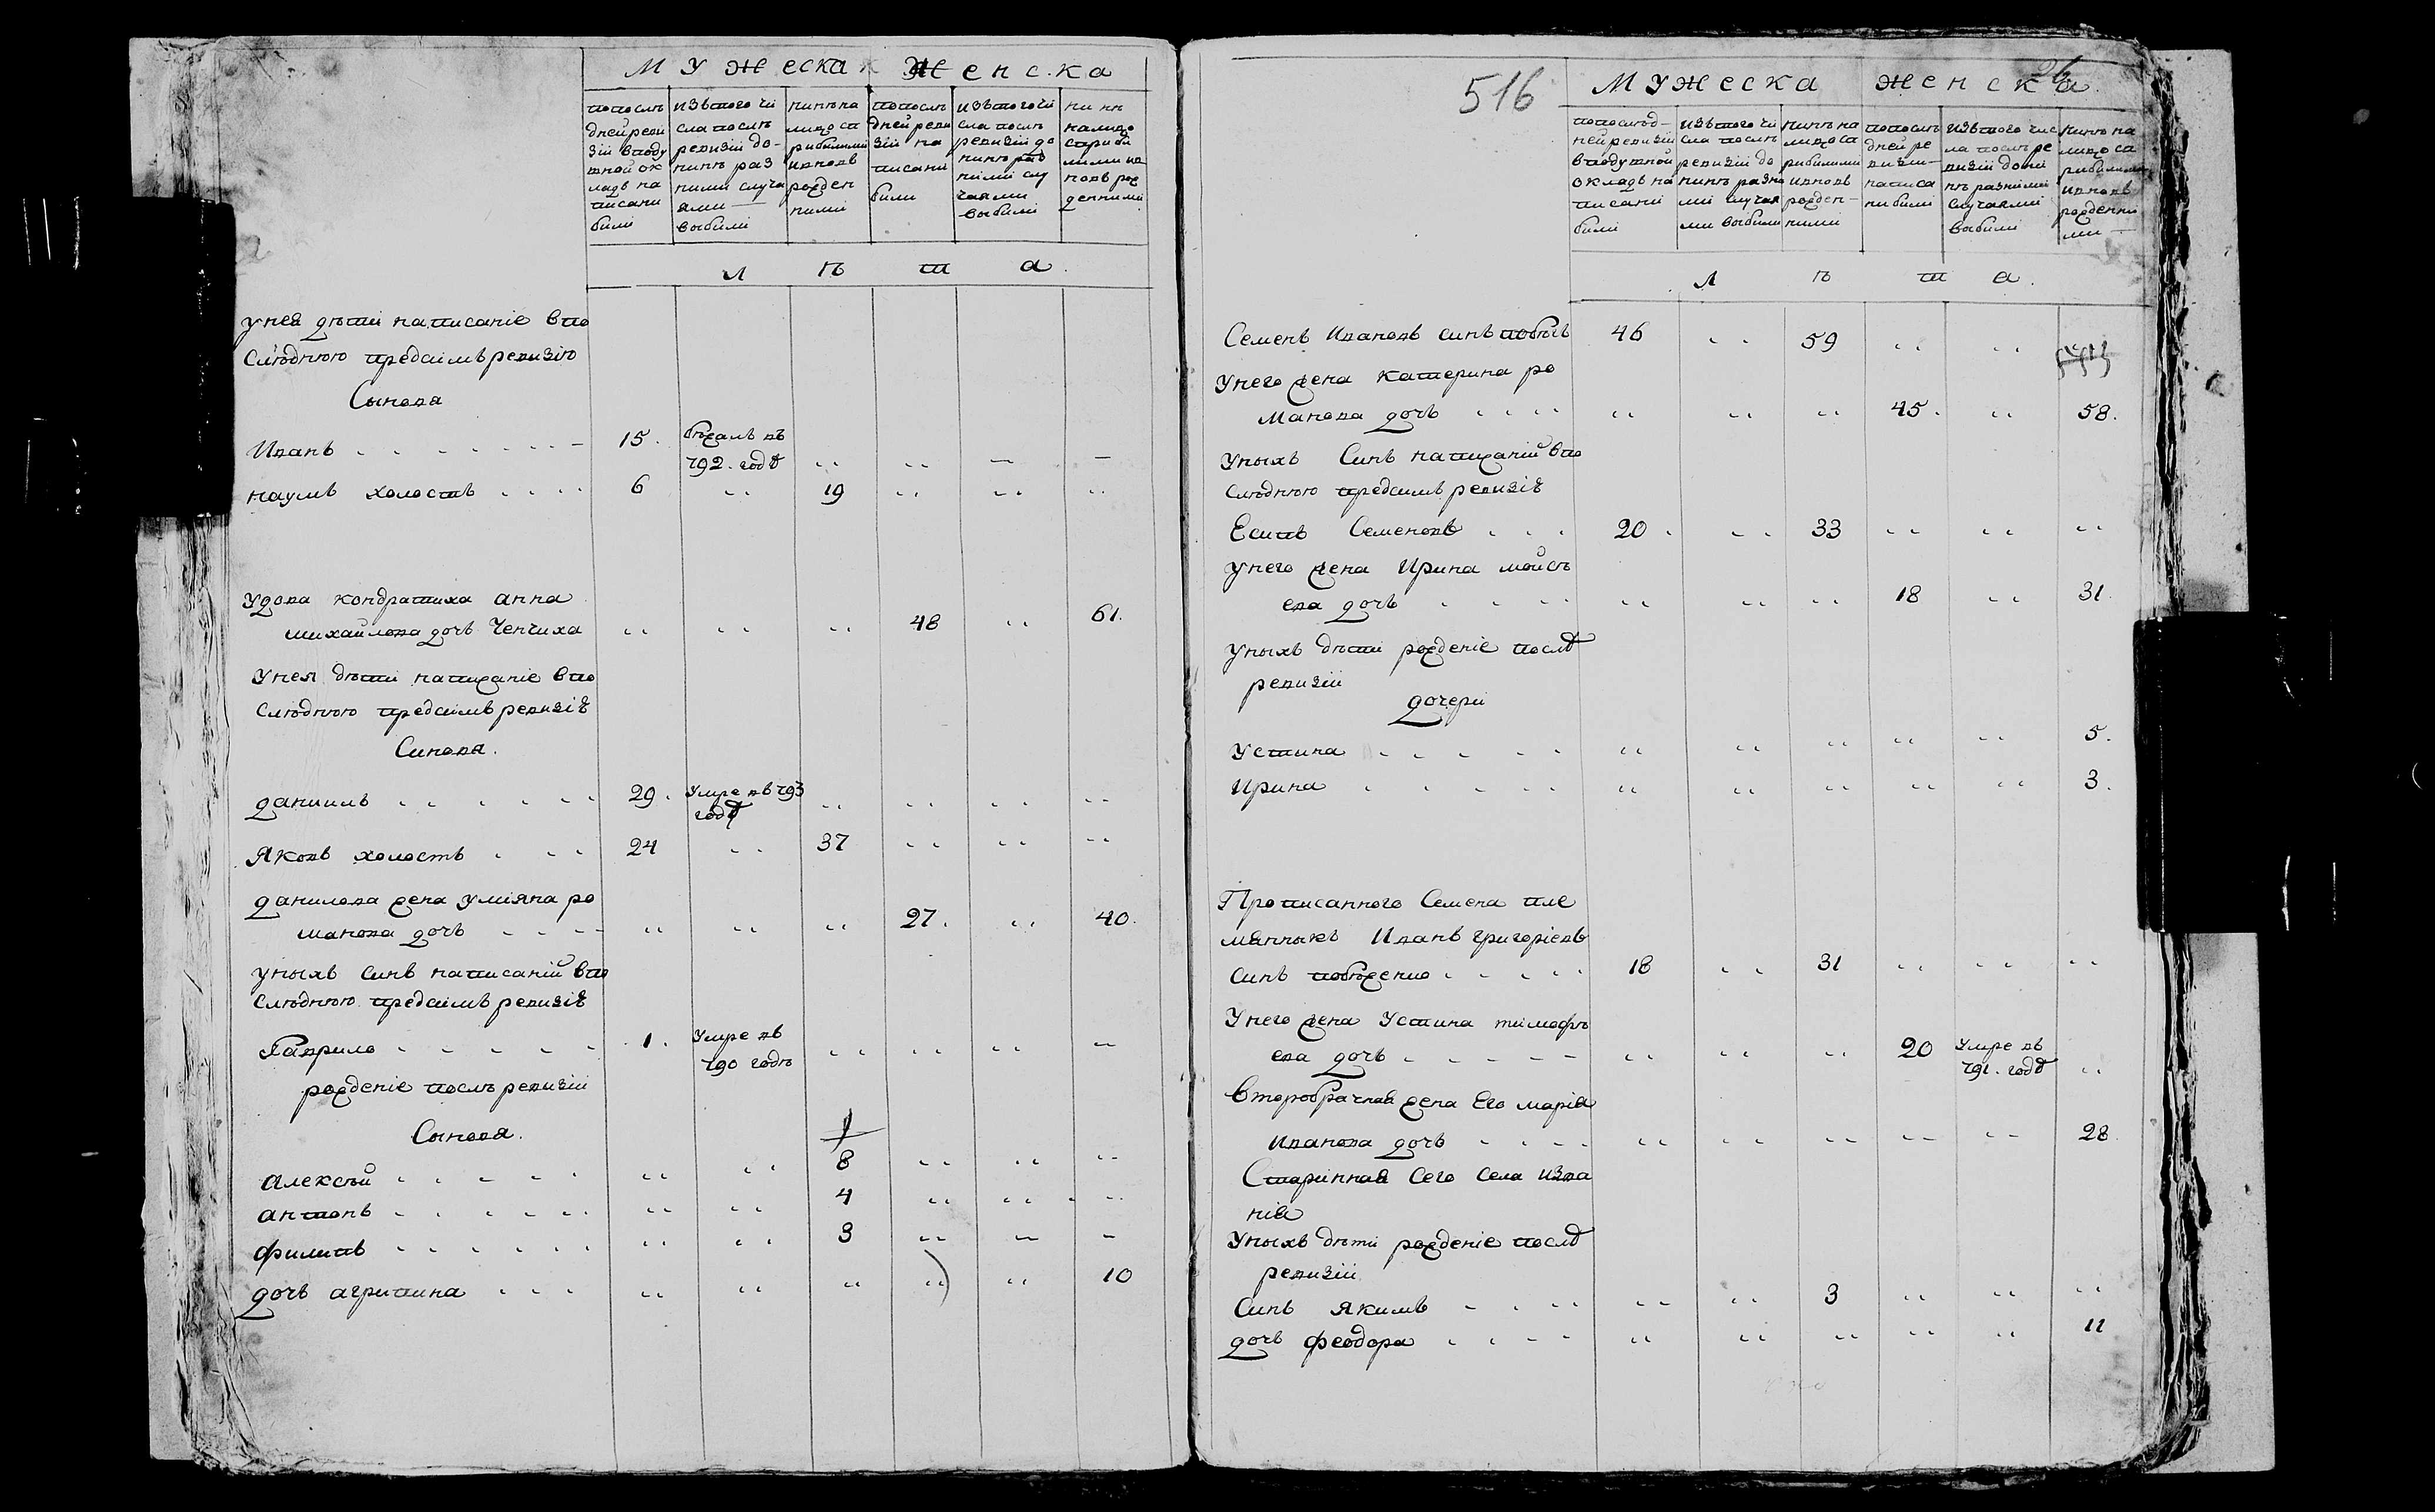 Мужеска Женска
попослѣ
дней реви
зіи вподу
шной ок
ладъ на
писани
были
изътого чи
сла послѣ
ревизіи до-
нинѣ раз
ними случа
ями
выбили
нинѣ на
лицо со
рибилими
ивновъ
рожден
ними
попослѣ
дней реви
зіи на
писани
били
изътого чи
сла послѣ
ревизіи до
нинѣ раз
ними слу
чаями
выбили
ни нѣ
налицо
сприби
лими ив
новъ рож
денними
л ѣ т а
унея дѣти написаніе впо
слѣднюю предсимъ ревизію
Сынова
Иванъ 15. бѣжалъ въ
792. годѣ
наумъ холостъ 6 19
удова кондратиха анна
михайлова дочъ Ченчиха 48 61.
Унея дѣти написаніе впо
слѣднюю предсимъ ревизіѣ
Синова.
даниилъ 29. Умре въ 793
годѣ
Яковъ холостъ 24 37
данилова жена умияна ро
манова дочъ 27. 40.
унихъ синъ написаній впо
слѣднюю предсимъ ревизіѣ
Гаврило 1. Умре въ
790 годѣ
рожденіе послѣ ревизіи
Сынова.
алексѣй 8
антонъ 4
филипъ 3
дочъ агрипина 10
516
26
Мужеска женска
попослѣд-
ней ревизіи
вподушной
окладъ на
писани
били
изътого чи
сла послѣ
ревизіи до
нинѣ разни
ми случая
ми выбили
нинѣ на
лицо со
рибилими
ивновъ
рожден-
ними
попослѣ
дней ре
визи-
написа
ни били
изътого чис
ла послѣ ре
визіи дони
нѣ разними
случаями
выбили
нинѣ на
лицо со
рибилими
ивновъ
рожденни
ми
л ѣ т а.
Семенъ Ивановъ синъ побѣгъ 46 59
Унего жена катерина ро
манова дочъ 45. 58.
Унихъ Синъ написаній впо
слѣднюю предсимъ ревизіѣ
Есипъ Семеновъ 20. 33
унего жена Ирина мойсѣ
ева дочъ 18 31.
Унихъ дѣти рожденіе послѣ
ревизіи
дочери
Устина 5.
Ирина 3.
Прописанного Семена пле
мянныкъ Иванъ григоріевъ
синъ побѣженко 18 31
Унего жена Устина тимофѣ
ева дочъ 20 Умре въ
791. годѣ
Второбрачная жена Его марія
Иванова дочъ 28.
Старинная Сего Села изва
нія
Унихъ дѣти рожденіе послѣ
ревизіи
Синъ якимъ 3
дочъ феодора 11